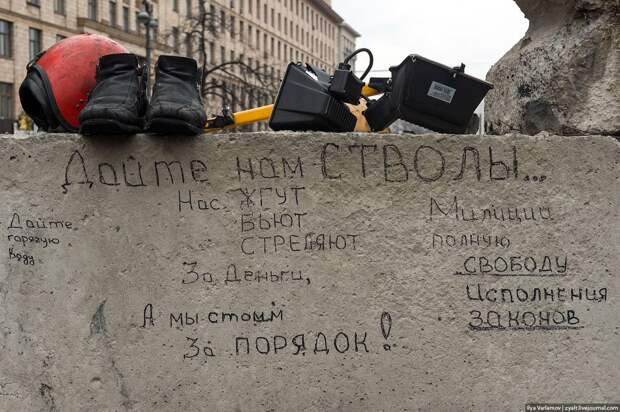 Дайте нам СТВОЛЫ...
Нас ЖГУТ
БЬЮТ
СТРЕЛЯЮТ
За Деньги,
А мы стоим
За ПОРЯДОК!
Дайте
горячую
воду
Милиции
полную
СВОБОДУ
Исполнения
ЗАКОНОВ
Ilya Varlamov | zyalt.livejournal.com